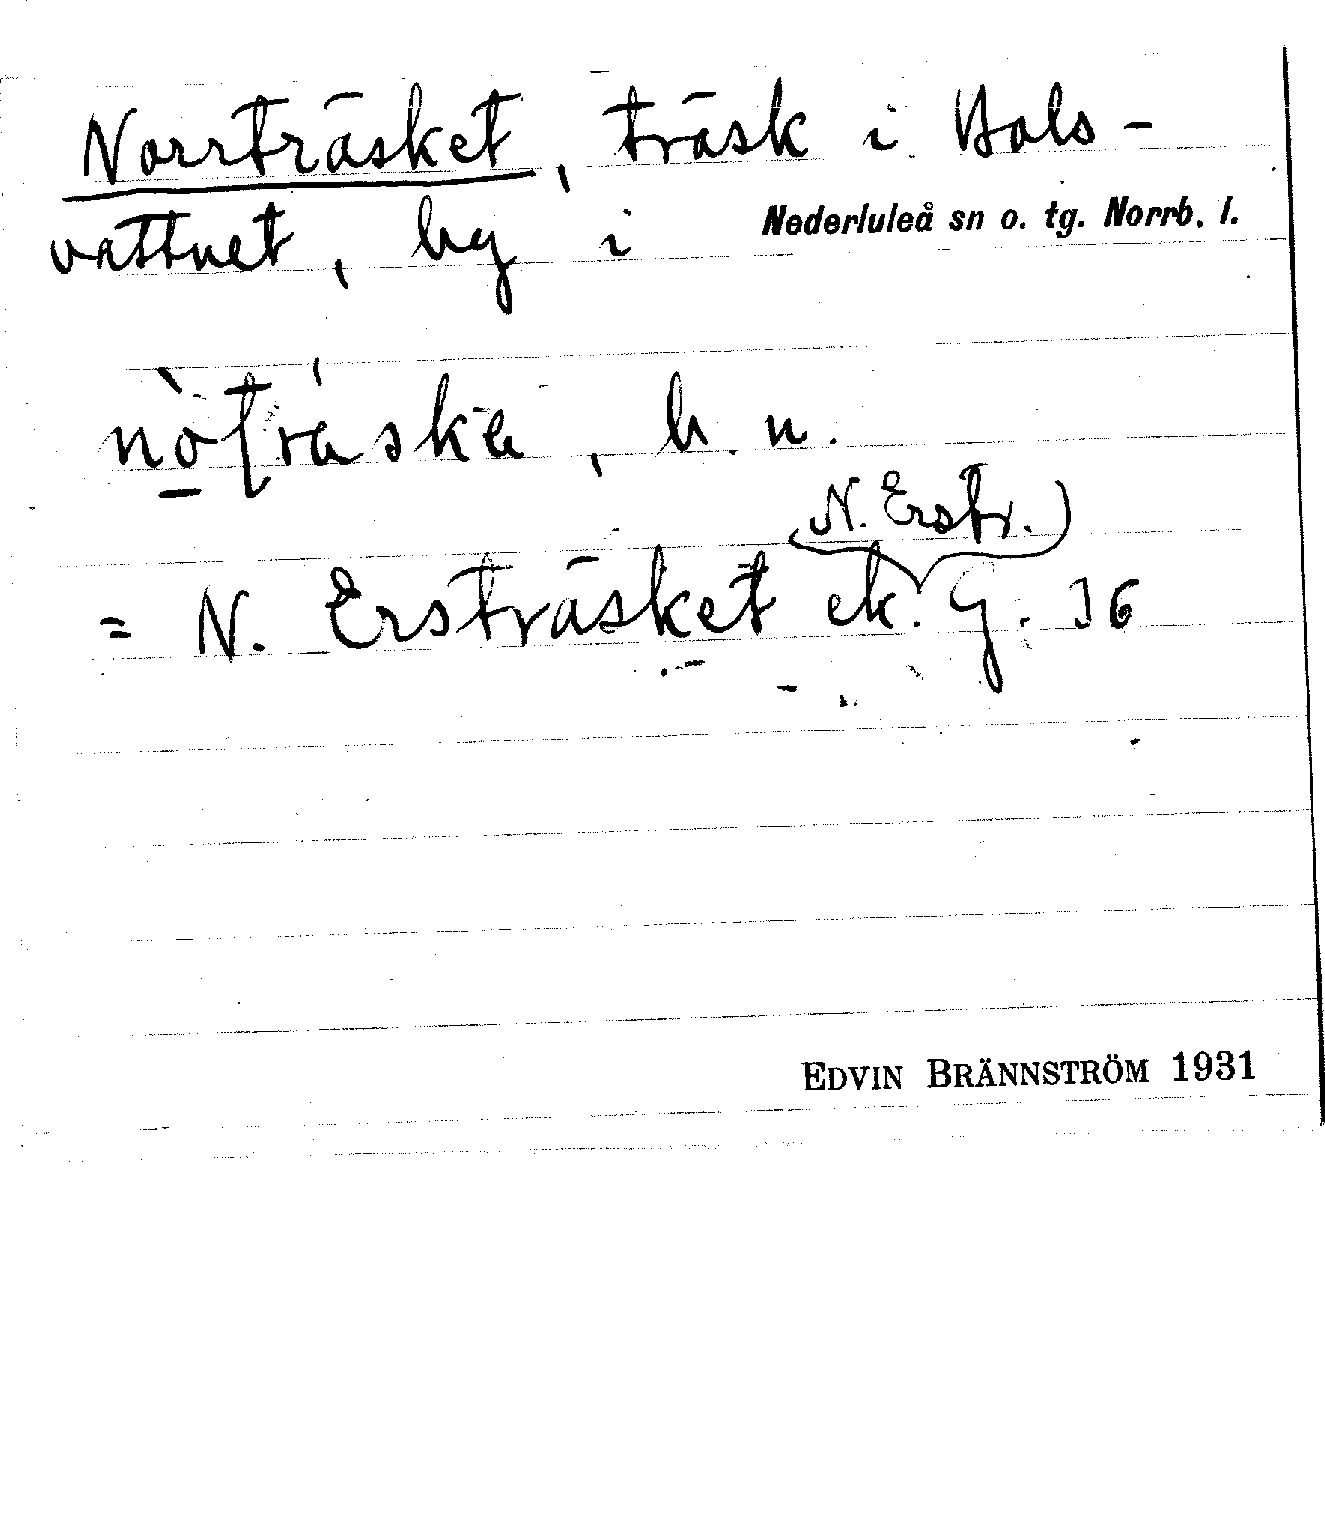 Norrträsket, träsk i Hols-
vattnet, by i Nederluleå sn o. tg. Norrb. l.
b. n.
(N. Erstr.)
= N. Ersträsket ek. G. 36
EDVIN BRÄNNSTRÖM 1931